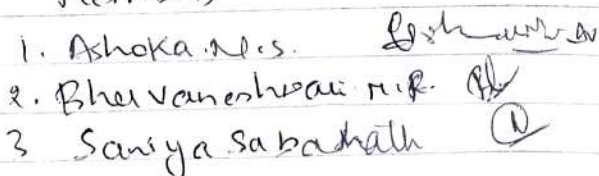 1. Ashoka.N.s.
2. Bhuvaneshwari M.R.
3 Saniya Sabahath